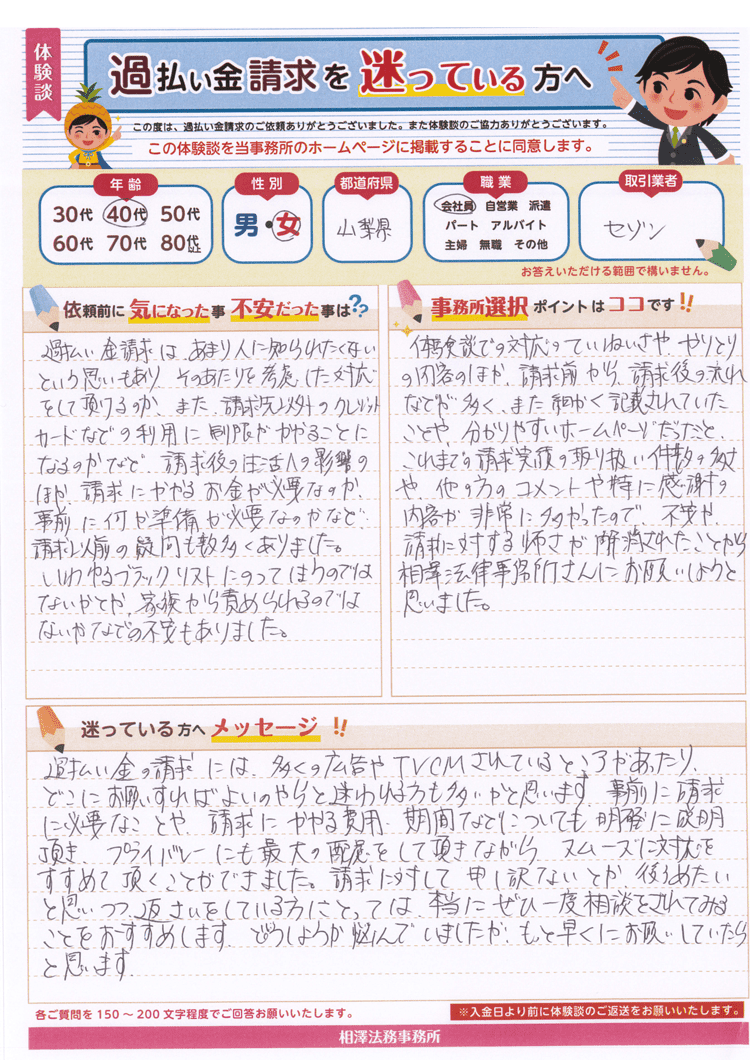 体験談
過払い金請求を迷っている方へ
この度は、過払い金請求のご依頼ありがとうございました。また体験談のご協力ありがとうございます。
この体験談を当事務所のホームページに掲載することに同意します。
年齢
30代 40代 50代
60代 70代 80代以上
性別
男・女
都道府県
山梨県
職業
会社員 自営業 派遣
パート アルバイト
主婦 無職 その他
取引業者
セゾン
お答えいただける範囲で構いません。
依頼前に気になった事 不安だった事は??
過払い金請求は、あまり人に知られたくない
という思いもあり、そのあたりを考慮した対応
をして頂けるのか、また、請求先以外のクレジット
カードなどの利用に制限がかかることに
なるのかなど、請求後の生活への影響の
ほか、請求にかかるお金が必要なのか、
事前に何か準備が必要なのかなど、
請求以前の疑問も数多くありました。
いわゆるブラックリストにのってしまうのでは
ないかとか、家族から責められるのでは
ないかなどの不安もありました。
事務所選択ポイントはココです!!
体験談での対応のていねいさや、やりとり
の内容のほか、請求前から、請求後の流れ
などが多く、また細かく記載されていた
ことや、分かりやすいホームページだったこと、
これまでの請求実績の取り扱い件数の多さ
や、他の方のコメントや特に感謝の
内容が非常に多かったので、不安や、
請求に対する怖さが解消されたことから
相澤法律事務所さんにお願いしようと
思いました。
迷っている方へメッセージ!!
過払い金の請求には、多くの広告やTVCMされているところがあったり、
どこにお願いすればよいのやらと迷われる方も多いかと思います。事前に請求
に必要なことや、請求にかかる費用、期間などについても明確に説明
頂き、プライバシーにも最大の配慮をして頂きながら、スムーズに対応を
すすめて頂くことができました。請求に対して、申し訳ないとか、後ろめたい
と思いつつ、返済をしている方にとっては、本当にぜひ一度相談をされてみる
ことをおすすめします。どうしようか悩んでいましたが、もっと早くにお願いしていたら
と思います。
各ご質問を150~200文字程度でご回答お願いいたします。
※入金日より前に体験談のご返送をお願いいたします。
相澤法務事務所